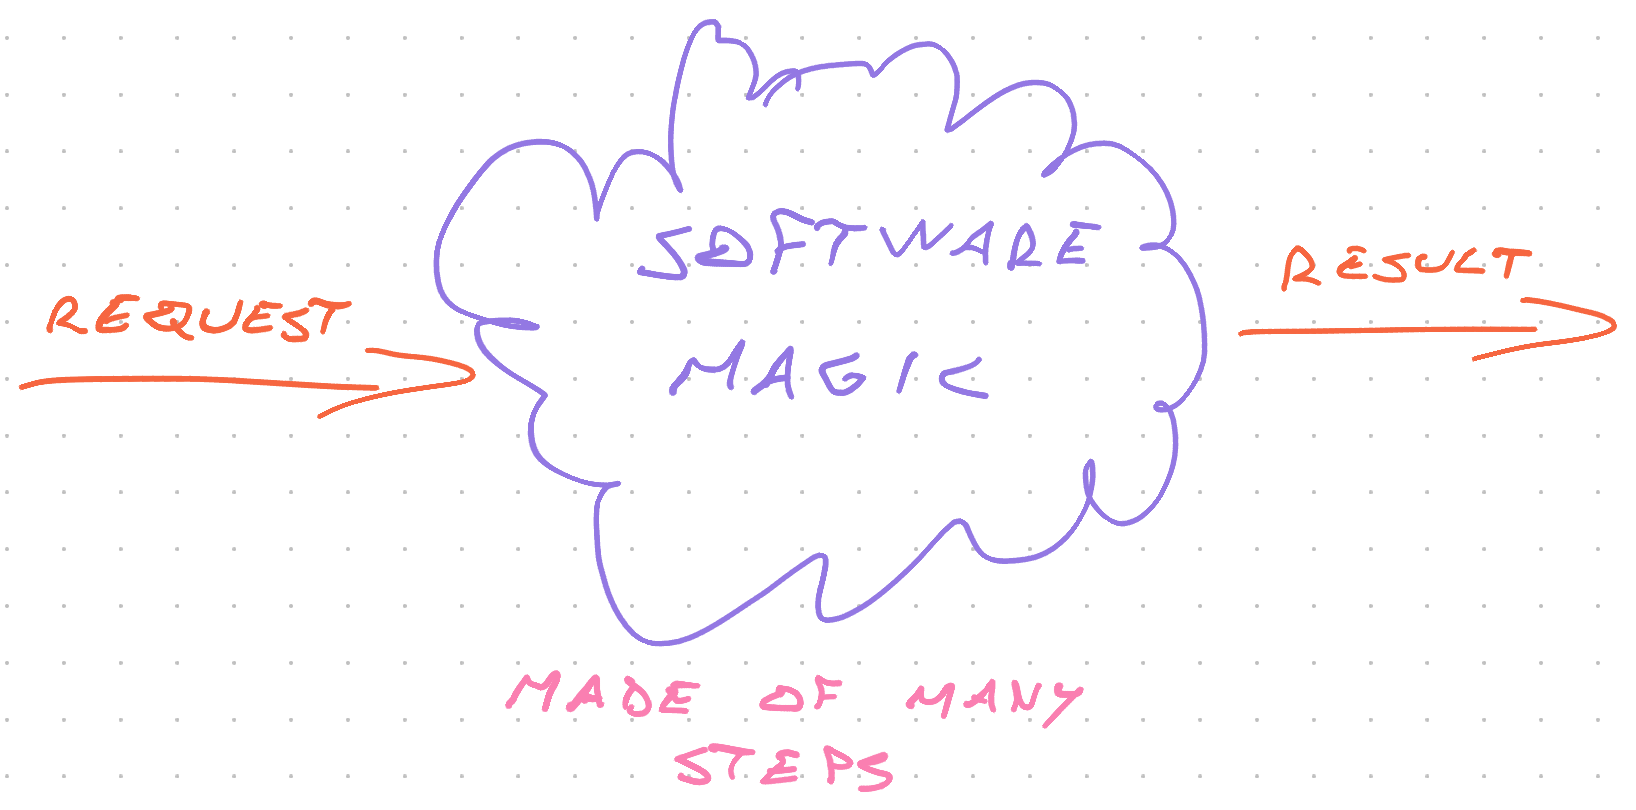 REQUEST
SOFTWARE
MAGIC
RESULT
MADE OF MANY
STEPS